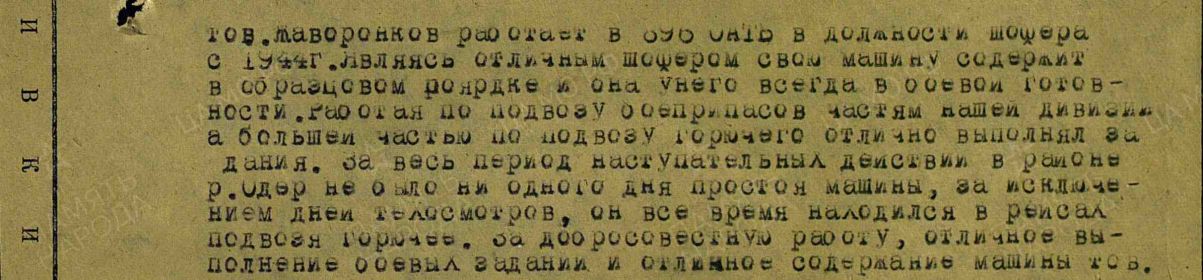 тов.Жаворонков работает в 696 ОАТБ в должности шофера
с 1944г.Являясь отличным шофером свою машину содержит
в образцовом роярдке и она унего всегда в боевой готов-
ности.Работая по подвозу боеприпасов частям нашей дивизии
а большей частью по подвозу горючего отлично выполнял за
дания. За весь период наступательных действий в районе
р.Одер не было ни одного дня простоя машины, за исключе-
нием дней техосмотров, он все время находился в рейсах
подвозя горючее. За добросовестную работу, отличное вы-
полнение боевых заданий и отлинное содержание машины тов.
И
В
К
И